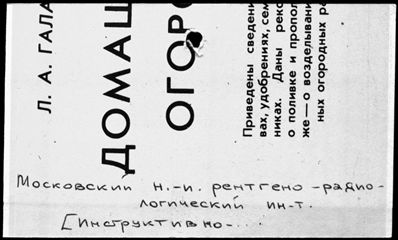 Л. А. ГАЛА
ДОМАШ
ОГОРО
Приведены сведени
вах, удобрениях, сем
никах. Даны реко
о поливке и пропол
же — о возделывани
ных огородных ра
Московский н.-и. рентгено-радио-
логический ин-т.
[Инструктивно-...